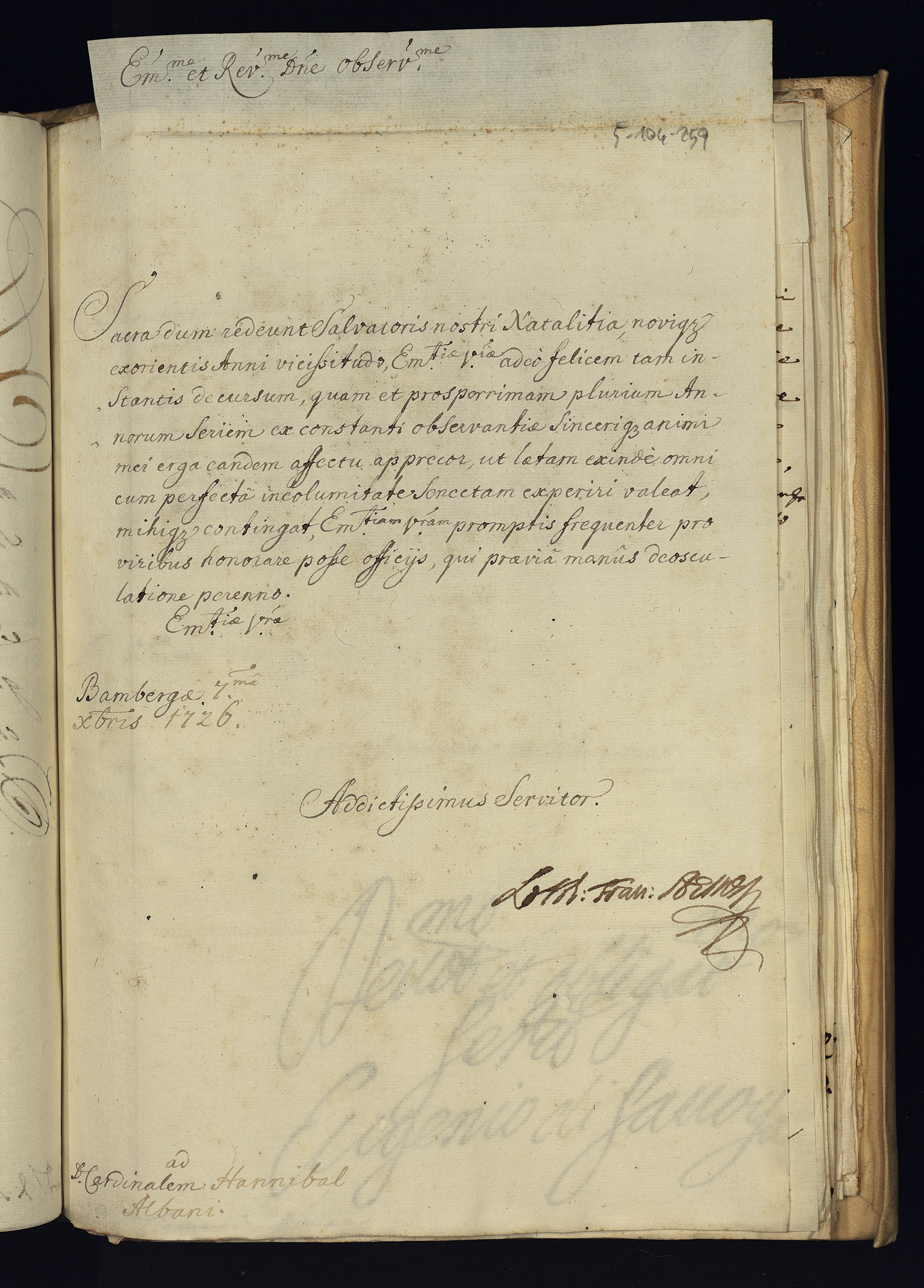 Em.me et Rev.me Dn̄e observ.me
5-104-259
Sacra dum redeunt Salvatoris nostri Natalitia, noviqꝫ
exorientis Anni vicissitudo, Em.tiæ v̄ræ adeò felicem tam in-
stantis decursum, quam et prosporrimam plurium An-
norum Seriem ex constanti observantiæ Sinceriqꝫ animi
mei erga eandem affectu apprecor, ut lætam exindè omni
cum perfectâ incolumitate Senectam experiri valeat,
mihiqꝫ contingat, Em.tiam v̄ram promptis frequenter pro
viribus honorare posse officijs, qui præviâ manûs deoscu-
latione perenno.
Em.tiæ v̄ræ
Bambergæ 7.mâ
xbris 1726.
Addictissimus Servitor.
Loth: Fran:
ad
D. Cardinalem Hannibal
Albani.
Devot et obligat
Servo
Eugenio di Savoya